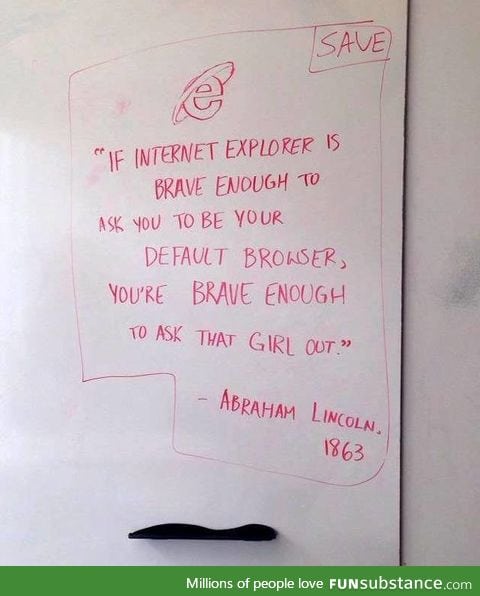 SAVE
e
"IF INTERNET EXPLORER IS
BRAVE ENOUGH TO
ASK YOU TO BE YOUR
DEFAULT BROWSER,
YOU'RE BRAVE ENOUGH
TO ASK THAT GIRL OUT."
- ABRAHAM LINCOLN.
1863
Millions of people love FUNsubstance.com